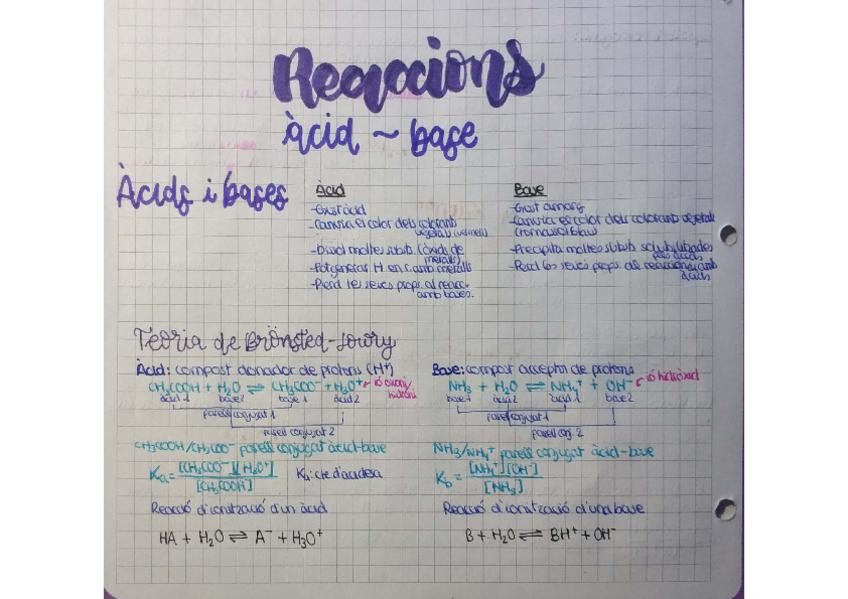 Reaccions
àcid ~ base
Àcids i bases
Àcid
-Gust àcid
-Canvia el color dels colorants
vegetals (vermell)
-Disol moltes subst. (òxids de
metalls)
-Pot generar H en r. amb metalls
-Perd les seves prop. al reacc.
amb bases.
Base
-Gust amarg
-Canvia el color dels colorants vegetals
-Precipita moltes subst. solubilitzades
pels àcids
-Perd les seves prop. al reaccionar amb
àcids
Teoria de Brönsted-Lowry
Àcid: compost donador de protons (H⁺)
CH₃COOH + H₂O ⇌ CH₃COO⁻ + H₃O⁺
àcid 1 base 2 base 1 àcid 2
parell conjugat 1
parell conjugat 2
CH₃COOH/CH₃COO⁻ parell conjugat àcid-base
Ka = [CH₃COO⁻][H₃O⁺]
[CH₃COOH]
Ka: cte d'acidesa
Reacció d'ionització d'un àcid
HA + H₂O ⇌ A⁻ + H₃O⁺
Base: compost acceptor de protons
NH₃ + H₂O ⇌ NH₄⁺ + OH⁻ ió hidròxid
base 1 àcid 2 àcid 1 base 2
parell conjugat 1
parell conj. 2
NH₃/NH₄⁺ parell conjugat àcid-base
Kb = [NH₄⁺][OH⁻]
[NH₃]
Reacció d'ionització d'una base
B + H₂O ⇌ BH⁺ + OH⁻